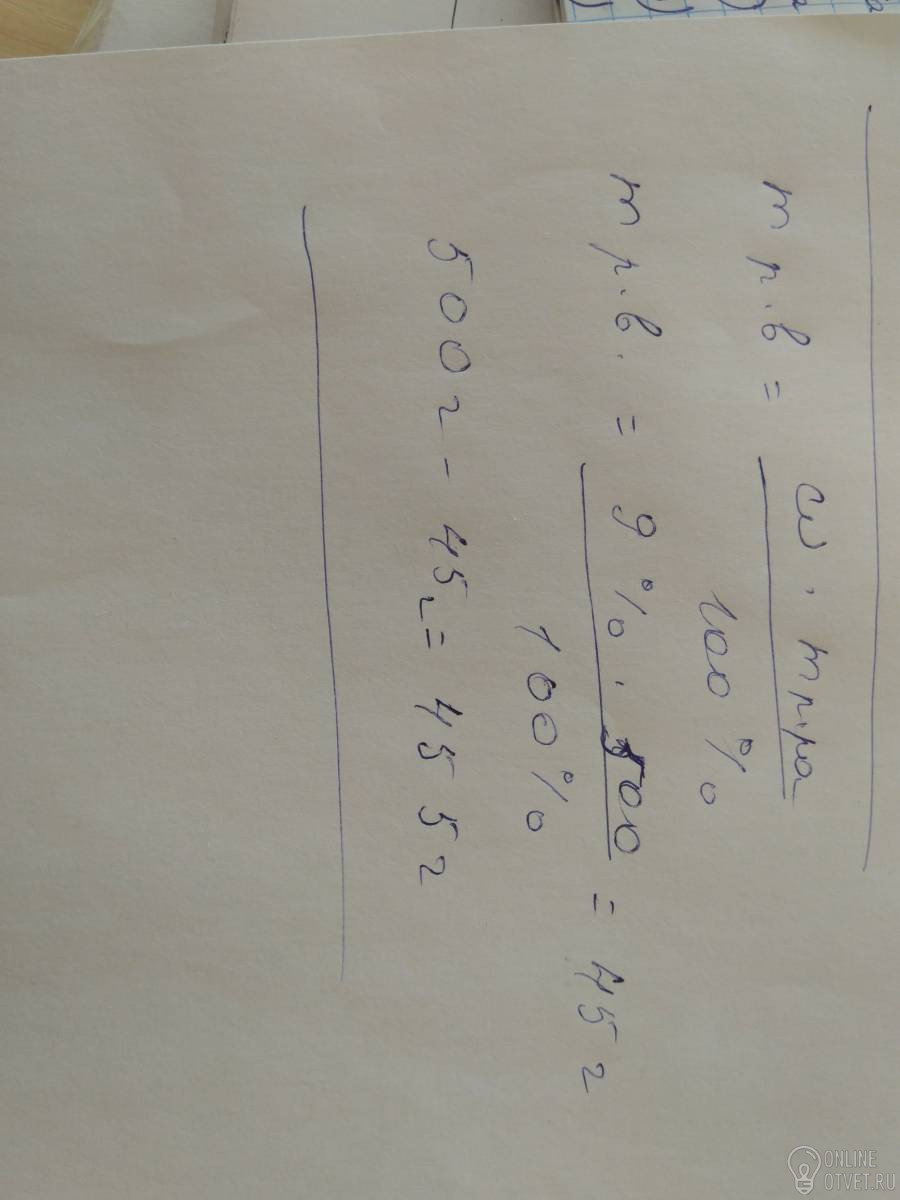 m р.в = ω · m р-ра
100 %
m р.в. = 9 % · 500 = 45 г
100 %
500 г - 45 г = 455 г
ONLINE
OTVET.RU